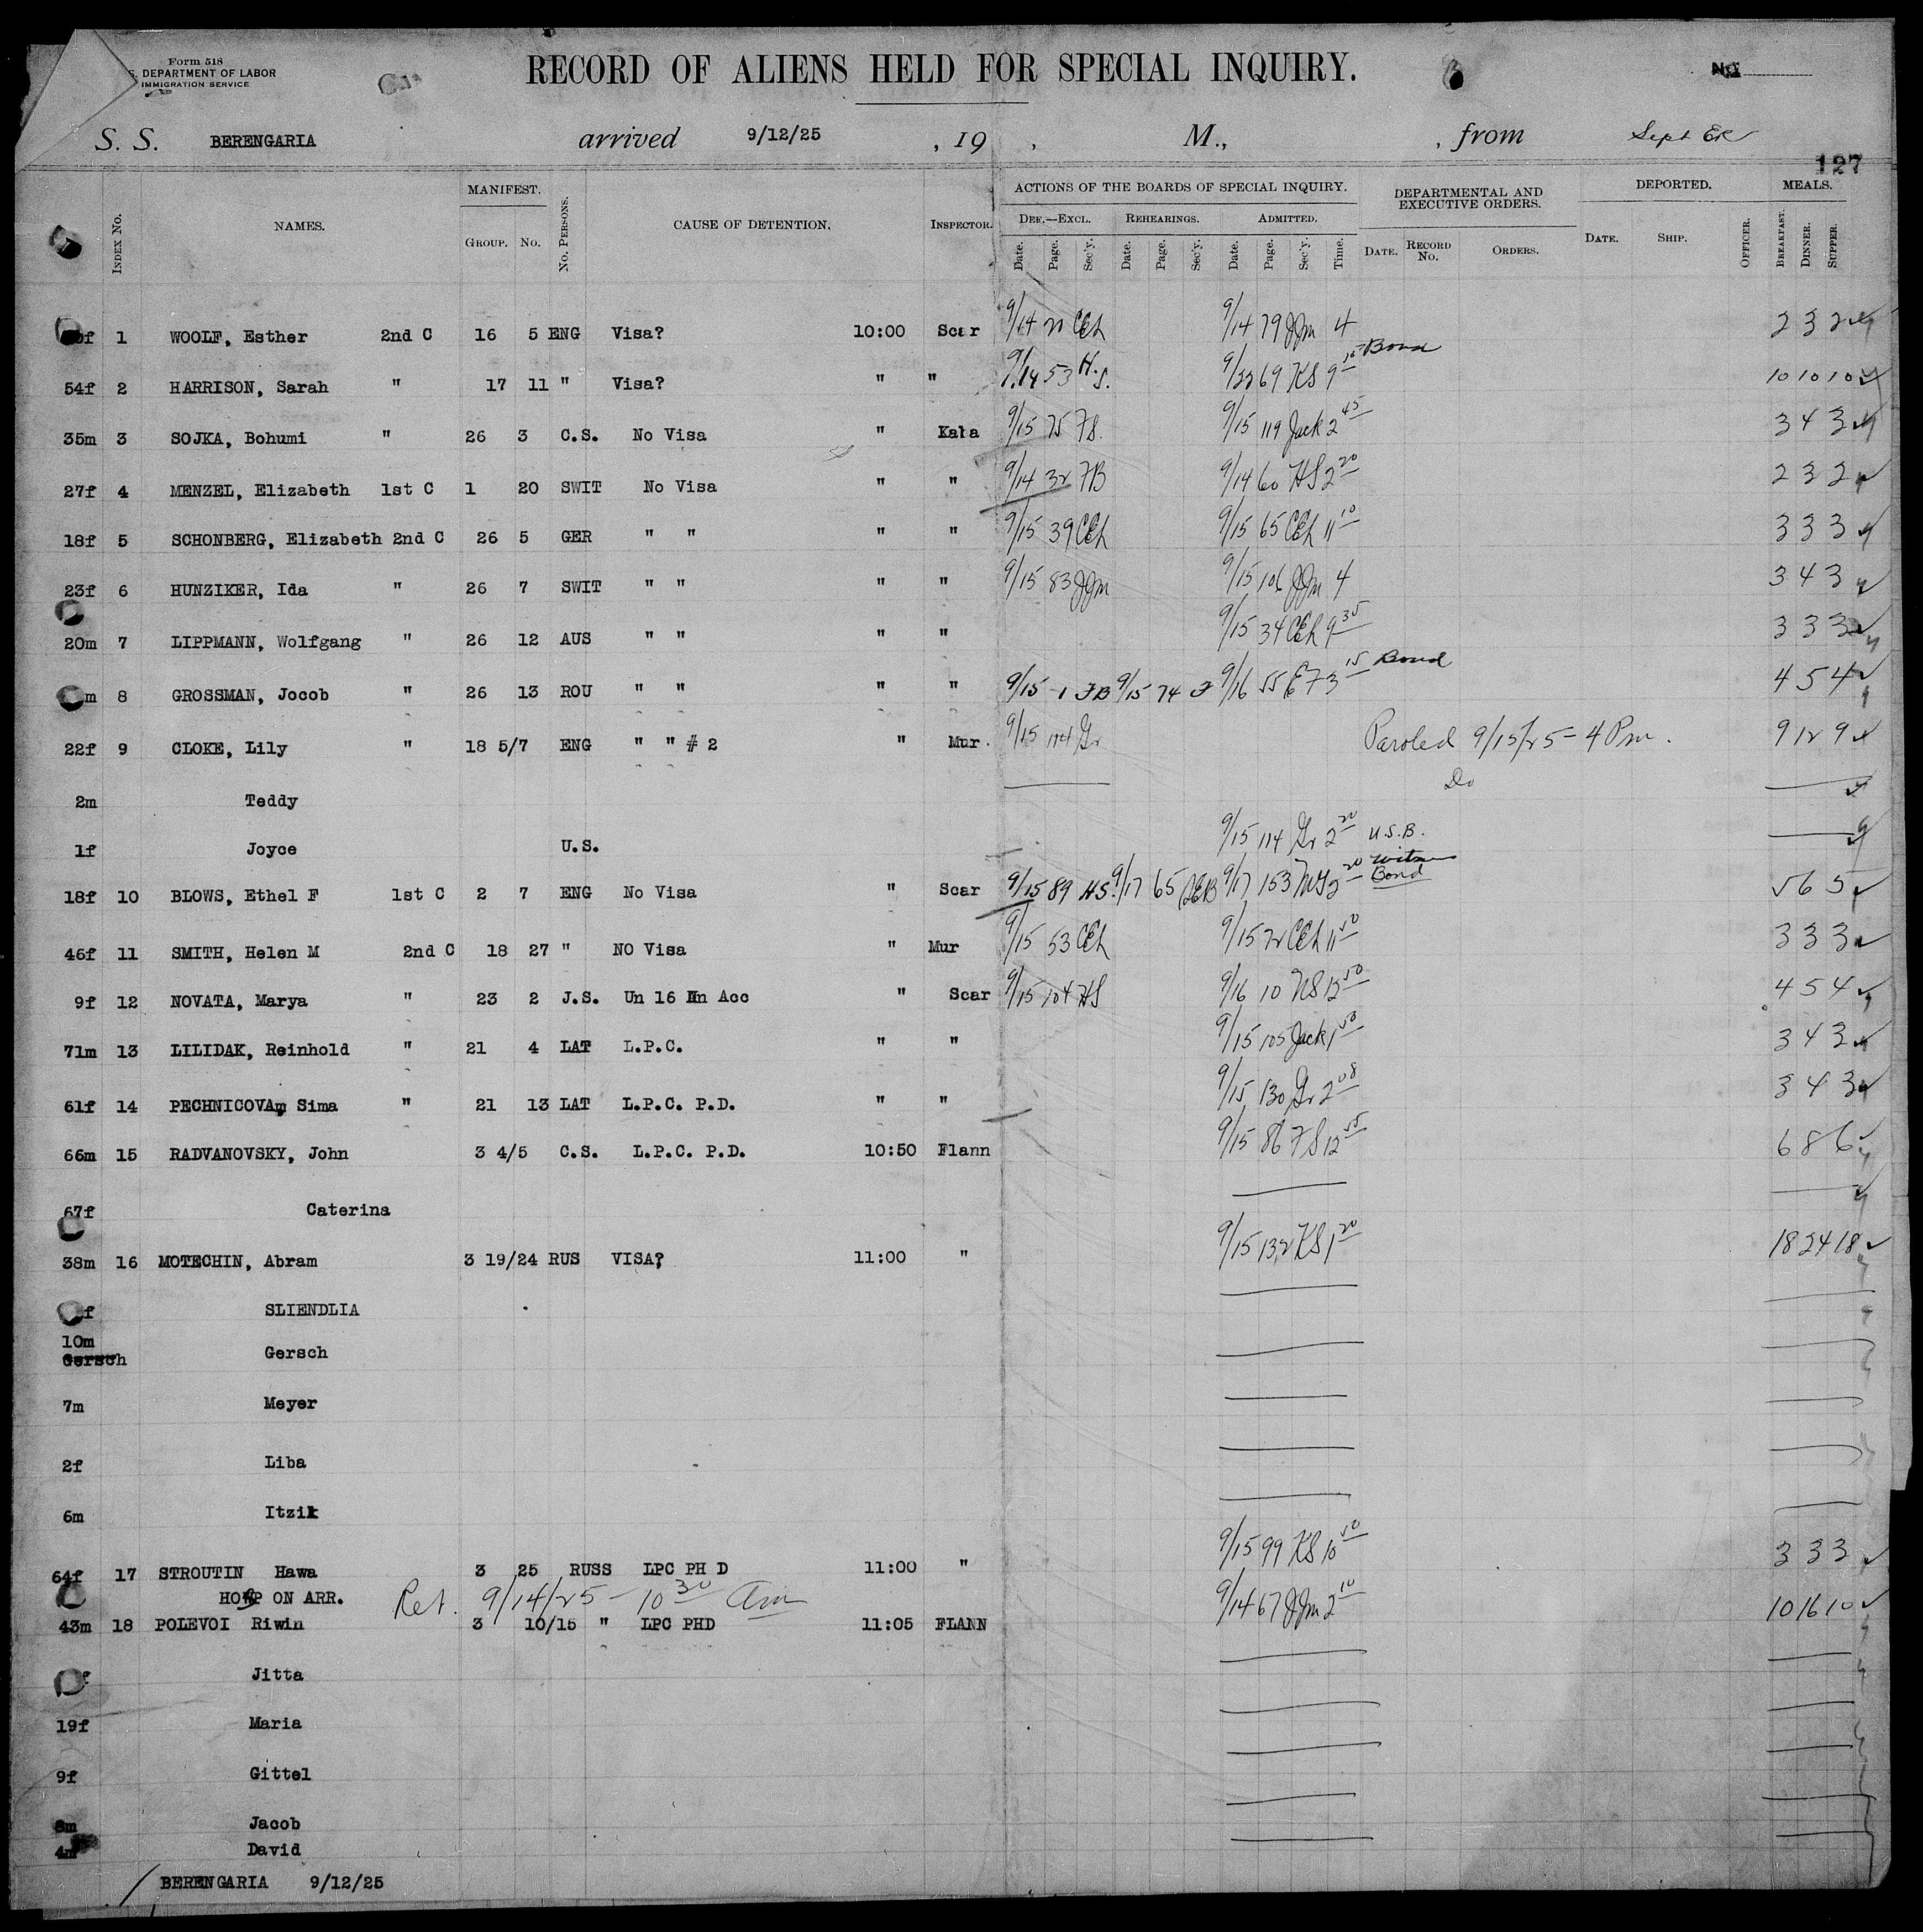 Form 518
S. DEPARTMENT OF LABOR
IMMIGRATION SERVICE
RECORD OF ALIENS HELD FOR SPECIAL INQUIRY.
No.
S. S. BERENGARIA arrived 9/12/25 , 19 , M., , from Sept
127
INDEX No. NAMES. MANIFEST. GROUP. No. No. PERSONS. CAUSE OF DETENTION. INSPECTOR. ACTIONS OF THE BOARDS OF SPECIAL INQUIRY. DEPARTMENTAL AND EXECUTIVE ORDERS. DEPORTED. MEALS.
DEF.—EXCL. REHEARINGS. ADMITTED.
Date. Page. Sec'y. Date. Page. Sec'y. Date. Page. Sec'y. Time. DATE. RECORD No. ORDERS. DATE. SHIP. OFFICER. BREAKFAST. DINNER. SUPPER.
f 1 WOOLF, Esther 2nd C 16 5 ENG Visa? 10:00 Scar 9/14 21 CEh 9/14 79 JJm 4 2 3 2
54f 2 HARRISON, Sarah " 17 11 " Visa? " " 9/14 53 H.S. 9/22 69 KS 9 15 Bond 10 10 10
35m 3 SOJKA, Bohumi " 26 3 C.S. No Visa " Kaba 9/15 25 FS. 9/15 119 Jack 2 45 3 4 3
27f 4 MENZEL, Elizabeth 1st C 1 20 SWIT No Visa " " 9/14 32 FB 9/14 60 HS 2 20 2 3 2
18f 5 SCHONBERG, Elizabeth 2nd C 26 5 GER " " " " 9/15 39 CEh 9/15 65 CEh 11 10 3 3 3
23f 6 HUNZIKER, Ida " 26 7 SWIT " " " " 9/15 83 JJm 9/15 106 JJm 4 3 4 3
20m 7 LIPPMANN, Wolfgang " 26 12 AUS " " " " 9/15 34 CEh 9 35 3 3 3
m 8 GROSSMAN, Jocob " 26 13 ROU " " " " 9/15 1 FB 9/15 74 F 9/16 55 EF 3 15 Bond 4 5 4
22f 9 CLOKE, Lily " 18 5/7 ENG " " # 2 " Mur. 9/15 114 Gr Paroled 9/15/25 - 4 Pm. 9 12 9
2m Teddy Do
1f Joyce U.S. 9/15 114 Gr 2 20 U.S.B.
18f 10 BLOWS, Ethel F 1st C 2 7 ENG No Visa " Scar 9/15 89 HS. 9/17 65 CEB 9/17 153 2 20 Bond 5 6 5
46f 11 SMITH, Helen M 2nd C 18 27 " NO Visa " Mur 9/15 53 CEh 9/15 72 CEh 11 50 3 3 3
9f 12 NOVATA, Marya " 23 2 J.S. Un 16 Un Acc " Scar 9/15 104 HS 9/16 10 KS 12 50 4 5 4
71m 13 LILIDAK, Reinhold " 21 4 LAT L.P.C. " " 9/15 105 Jack 1 50 3 4 3
61f 14 PECHNICOVA, Sima " 21 13 LAT L.P.C. P.D. " " 9/15 130 Gr 2 08 3 4 3
66m 15 RADVANOVSKY, John 3 4/5 C.S. L.P.C. P.D. 10:50 Flann 9/15 86 FS 12 55 6 8 6
67f Caterina
38m 16 MOTECHIN, Abram 3 19/24 RUS VISA? 11:00 " 9/15 132 KS 1 20 18 24 18
f SLIENDLIA
10m
Gersch Gersch
7m Meyer
2f Liba
6m Itzik
64f 17 STROUTIN Hawa 3 25 RUSS LPC PH D 11:00 " 9/15 99 KS 10 50 3 3 3
HOSP ON ARR. Ret. 9/14/25 - 10 30 am
43m 18 POLEVOI Riwin 3 10/15 " LPC PHD 11:05 FLANN 9/14 67 JJm 2 10 10 16 10
f Jitta
19f Maria
9f Gittel
8m Jacob
4m David
BERENGARIA 9/12/25